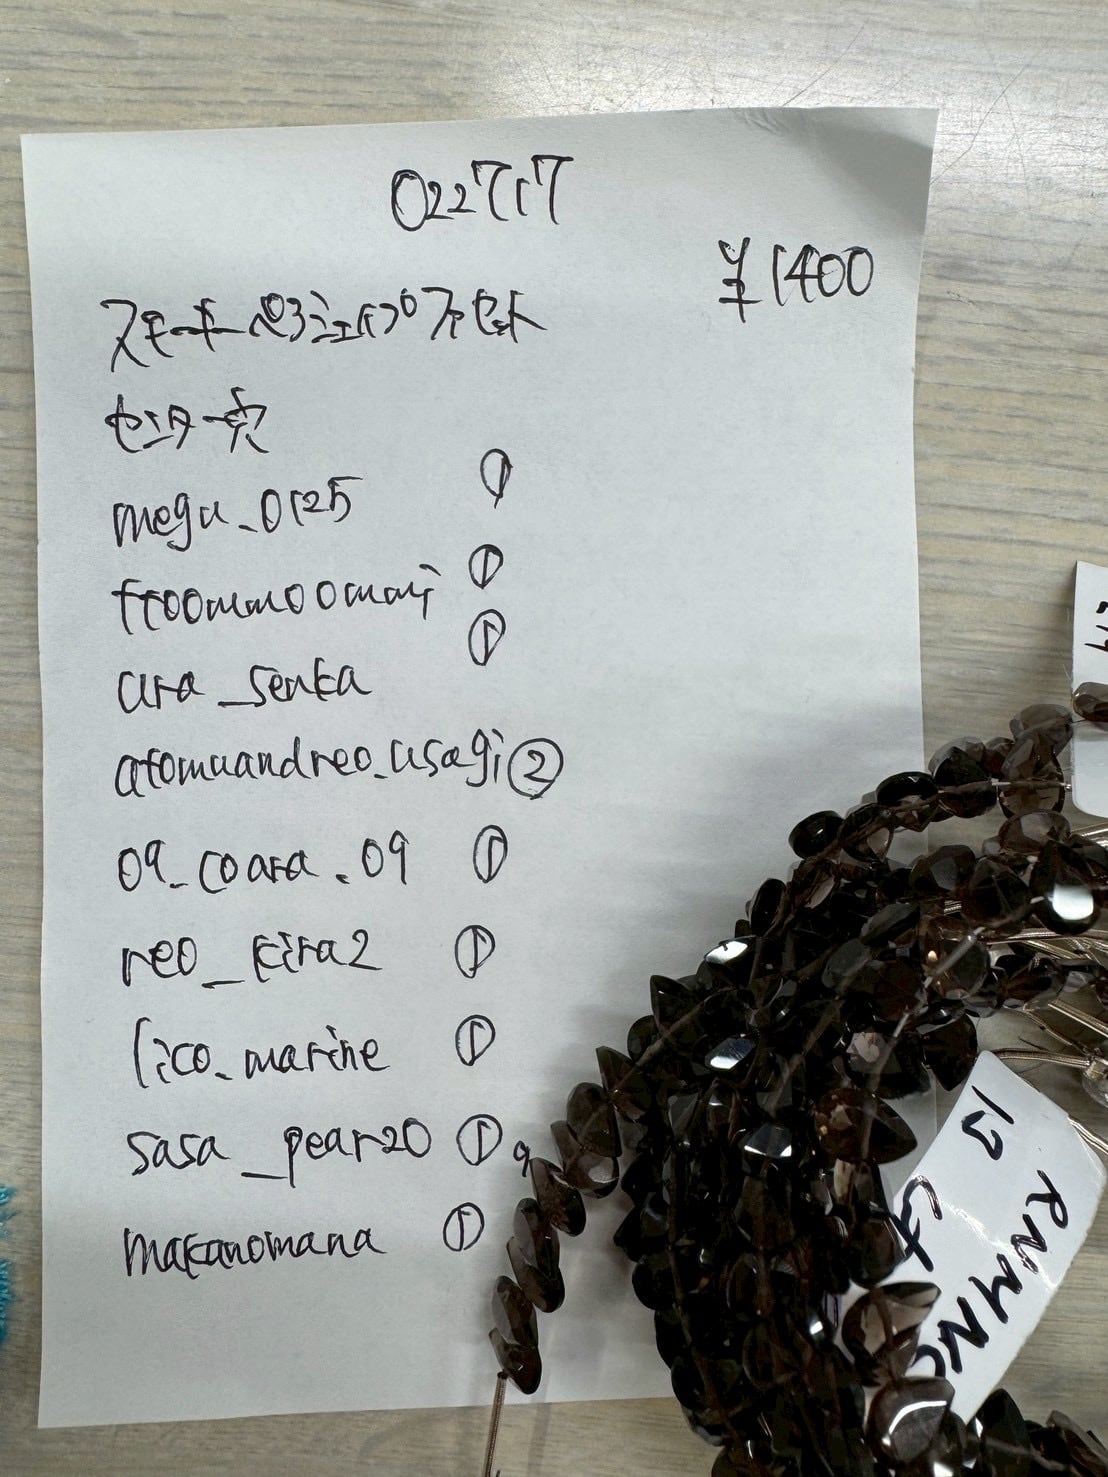 022717
¥1400
スモーキーペアシェイプファセット
センター穴
megu_0125 ①
ttoommoomomj ①
ara_senka ①
atomuandreo_usagi ②
09_coara.09 ①
reo_kira2 ①
lico_marine ①
sasa_pear20 ① 9
makanomana ①
13
RNMYN